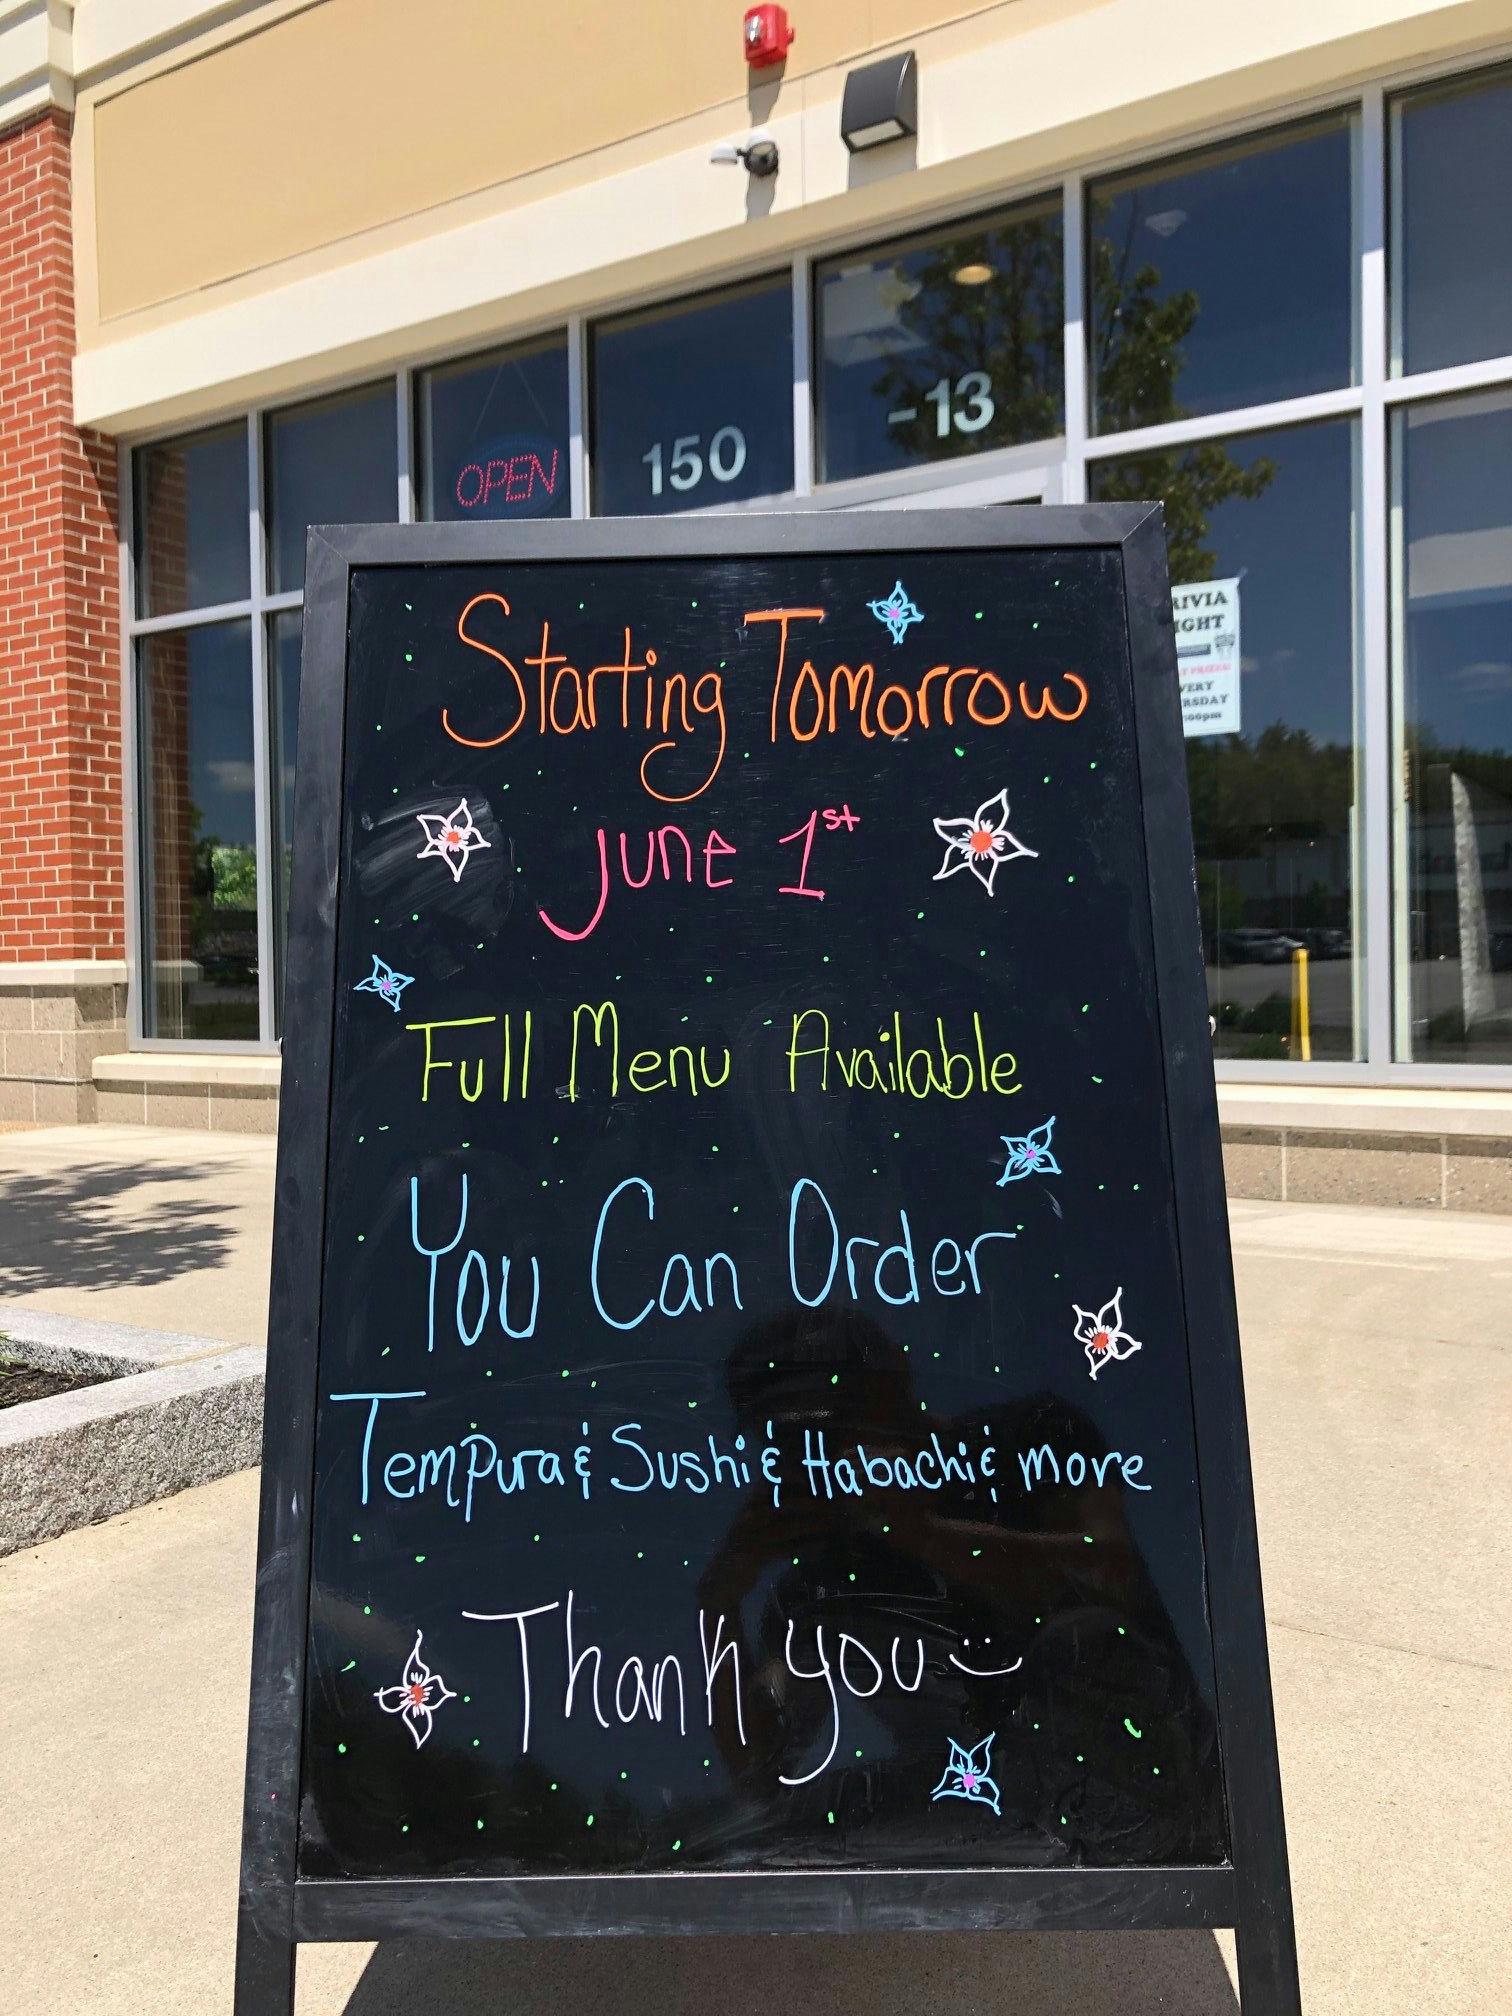 OPEN
150
-13
Starting Tomorrow
June 1st
Full Menu Available
You Can Order
Tempura & Sushi & Habachi & more
Thank you
RIVIA
IGHT
PRIZES!
VERY
RSDAY
:00pm